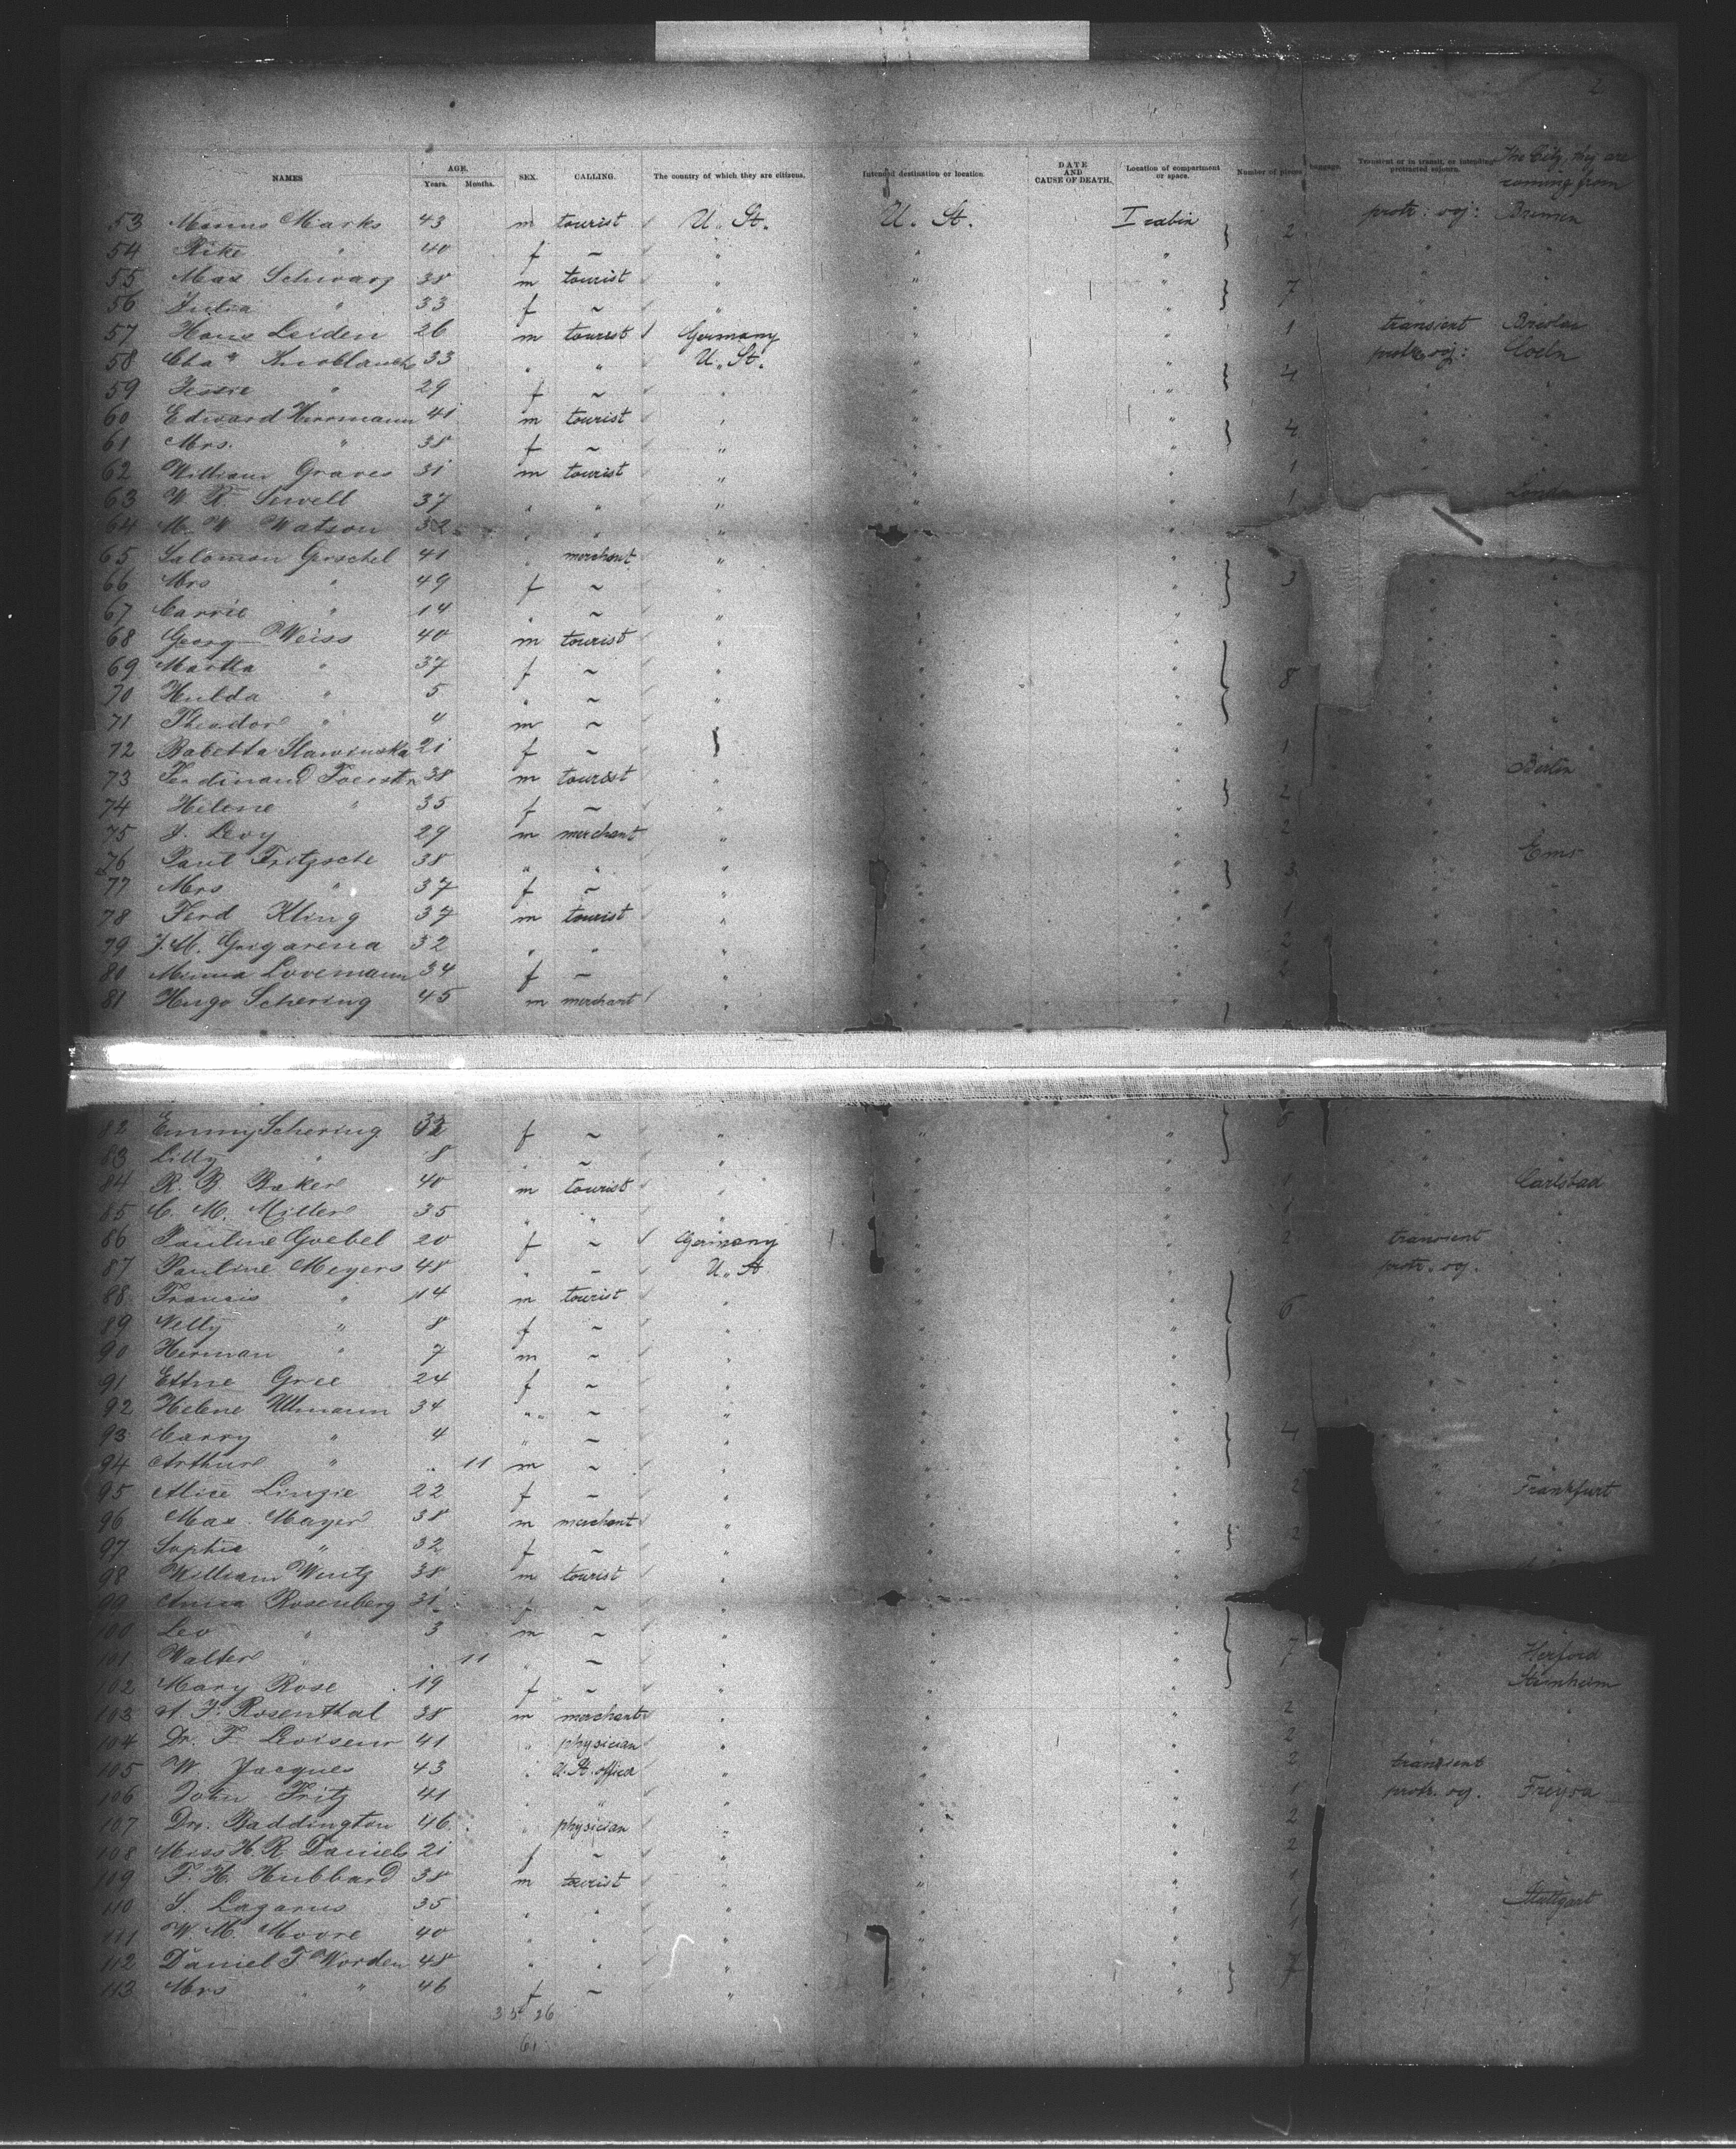 2
NAMES AGE. Years. Months. SEX. CALLING. The country of which they are citizens. Intended destination or location. DATE AND CAUSE OF DEATH. Location of compartment or space. Number of pieces baggage. Transient or in transit, or intending protracted sojourn. The City, they are coming from
53 Marks 43 m tourist U. St. U. St. I cabin 2 protr: soj: Bremen
54 Rike " 40 f ~ " " "
55 Max Schwarz 38 m tourist " " " 7
56 Julia " 33 f ~ " " "
57 Hans Leiden 26 m tourist Germany " " 1 transient Breslau
58 Chas Knoblauch 33 " " U. St. " " 4 protr. soj: Coeln
59 " 29 f ~ " " "
60 Edward Herrmann 41 m tourist " " " 4
61 Mrs. " 38 f ~ " " "
62 William Graves 31 m tourist " " " 1
63 W. R. Sewell 37 " " " " " 1 London
64 M. W. Watson 32 " " " "
65 Salomon Gerschel 41 " merchant " " " 3
66 Mrs " 49 f ~ " " "
67 Carrie " 14 " ~ " " "
68 Georg Weiss 40 m tourist " " " 8
69 Martha " 37 f ~ " " "
70 Hulda " 5 " ~ " " "
71 Theodore " 4 m ~ " " "
72 Babetta Slawinska 21 f ~ " " 1
73 Ferdinand Foerster 38 m tourist " " " 2 Berlin
74 Helene " 35 f ~ " " "
75 J. Levy 29 m merchant " " " 2
76 Paul Fritzsche 38 " " " " " 3 Ems
77 Mrs " 37 f ~ " " "
78 Ferd Kling 37 m tourist " " " 1
79 J. M. 32 " " " " " 2
80 Minna Lovemann 34 f ~ " " " 2
81 Hugo Schering 45 m merchant " " "
82 Emmy Schering 32 f ~ " " " 8
83 Lilly " 8 " ~ " " "
84 R. B. Baker 40 m tourist " " " 1 Carlsbad
85 C. M. Miller 35 " " " " " 1
86 Pauline Goebel 20 f ~ Germany " " 2 transient
87 Pauline Meyers 48 " ~ U. St. " " 6 protr. soj.
88 Francis " 14 m tourist " " "
89 Nelly " 8 f ~ " " "
90 Herman " 7 m ~ " " "
91 Gree 24 f ~ " " "
92 Helene Ullmann 34 " ~ " " " 4
93 Carry " 4 " ~ " " "
94 Arthur " 11 m ~ " " "
95 Alice Linzie 22 f ~ " " " 2 Frankfurt
96 Max Mayer 38 m merchant " " " 2
97 Sophie " 32 f ~ " " "
98 William Wentz 38 m tourist " " "
99 Anna Rosenberg 31 f ~ " " "
100 Leo " 3 m ~ " " " 7
101 Walter " 11 " ~ " " " Herford
102 Mary Rose 19 f ~ " " " Steinheim
103 A. J. Rosenthal 38 m merchant " " " 2
104 Dr. F. 41 " physician " " " 2
105 W. Jacques 43 " U. St. officer " " " 2 transient
106 John Fritz 41 " " " " " 1 protr. soj. Freysa
107 Dr. Baddington 46 " physician " " " 2
108 Miss H. R. Daniels 21 f ~ " " " 2
109 F. H. Hubbard 38 m tourist " " " 1
110 S. Lazarus 35 " " " " " 1 Stuttgart
111 W. M. Moore 40 " " " " " 1
112 Daniel T Worden 48 " " " " " 7
113 Mrs " 46 f ~ " " "
35 26
61